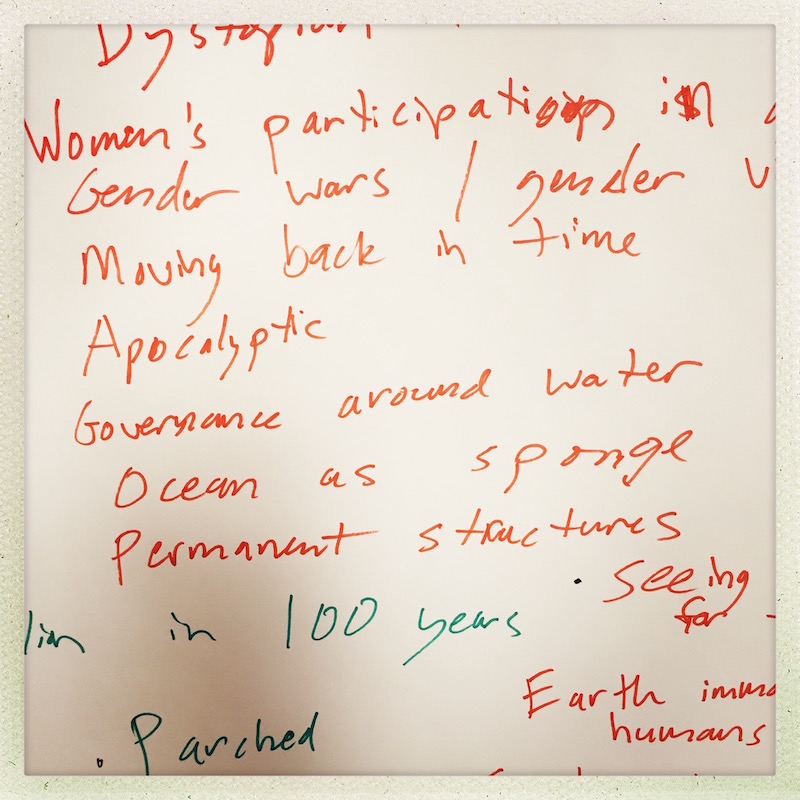 Dystopian
Women's participation in
Gender wars / gender
Moving back in time
Apocalyptic
Governance around water
Ocean as sponge
Permanent structures
Seeing
for
in 100 years
Earth
humans
Parched